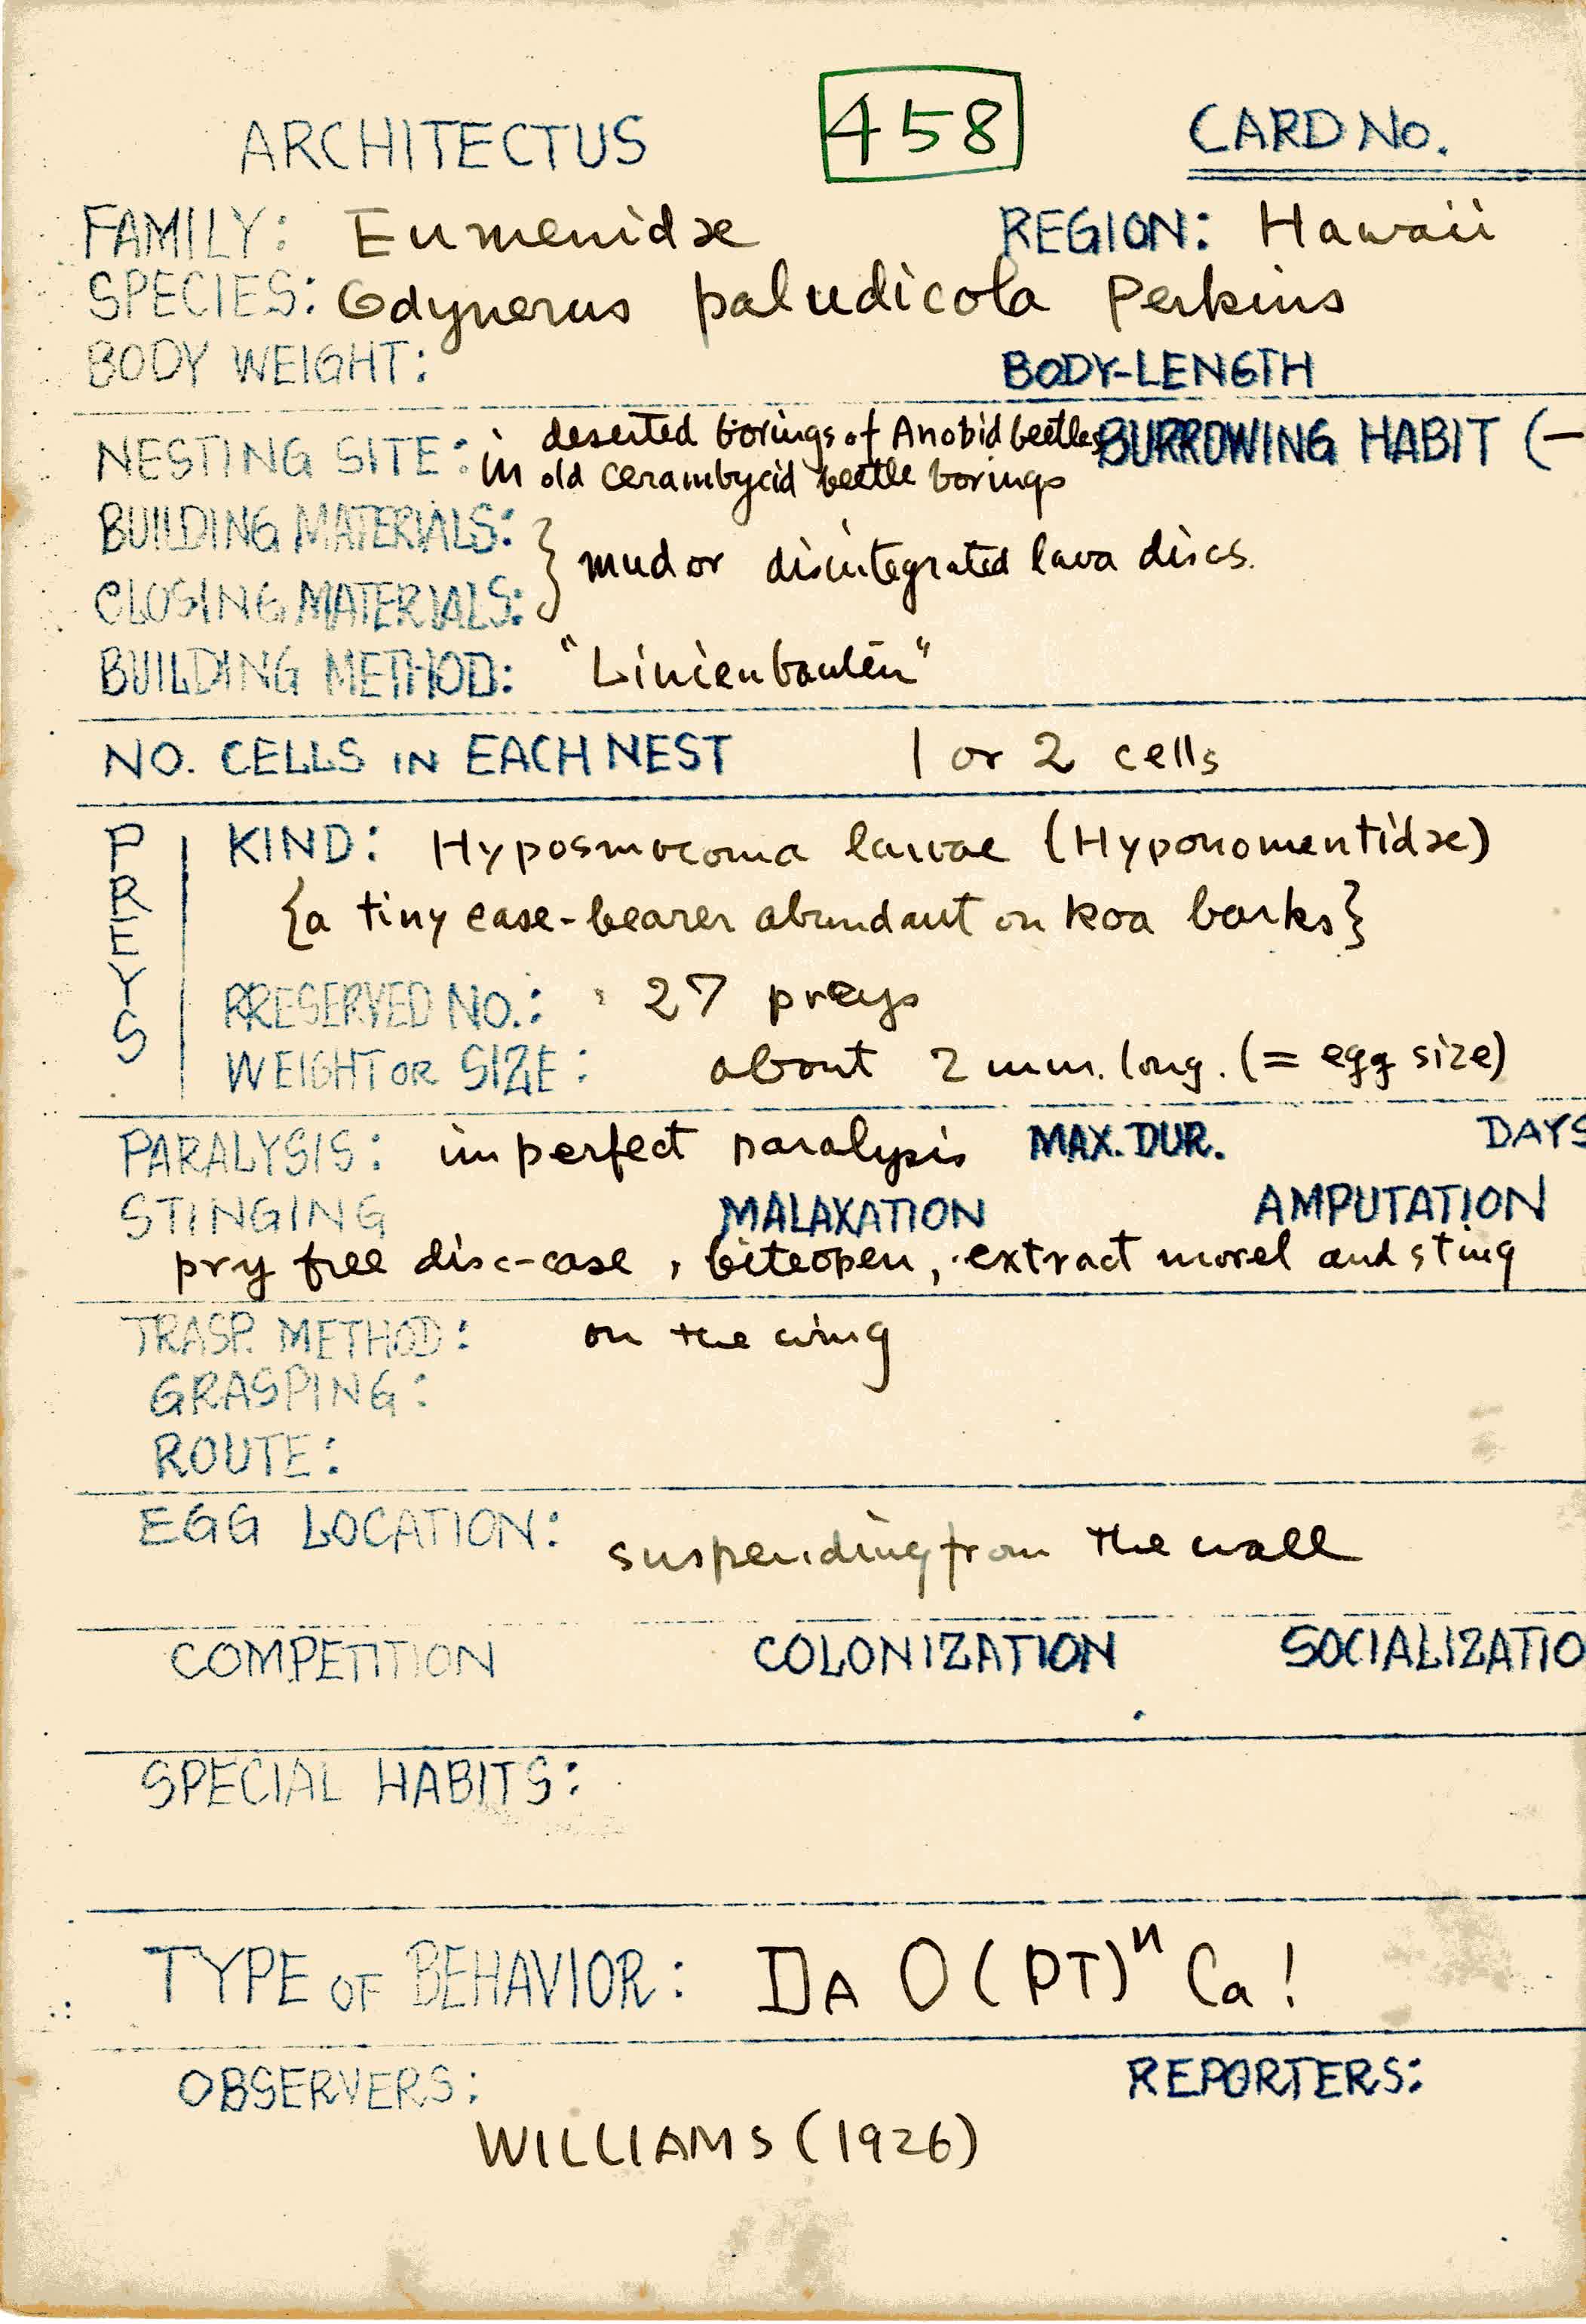 ARCHITECTUS 458 CARD No.
FAMILY: Eumenidae REGION: Hawaii
SPECIES: Odynerus paludicola Perkins
BODY WEIGHT: BODY-LENGTH
NESTING SITE: in deserted borings of Anobid beetles BURROWING HABIT (–
in old cerambycid beetle borings
BUILDING MATERIALS:
} mud or disintegrated lava discs.
CLOSING MATERIALS:
BUILDING METHOD: "Linienbauten"
NO. CELLS IN EACH NEST 1 or 2 cells
PREYS
KIND: Hyposmocoma larvae (Hyponomentidae)
{a tiny case-bearer abundant on koa barks}
PRESERVED NO.: 27 preys
WEIGHT OR SIZE: about 2 mm. long. (= egg size)
PARALYSIS: imperfect paralysis MAX. DUR. DAYS
STINGING MALAXATION AMPUTATION
pry free disc-case, bite open, extract morel and sting
TRASP. METHOD: on the wing
GRASPING:
ROUTE:
EGG LOCATION: suspending from the wall
COMPETITION COLONIZATION SOCIALIZATIO
SPECIAL HABITS:
TYPE OF BEHAVIOR: IDA O(PT)ⁿ Ca!
OBSERVERS: REPORTERS:
WILLIAMS (1926)